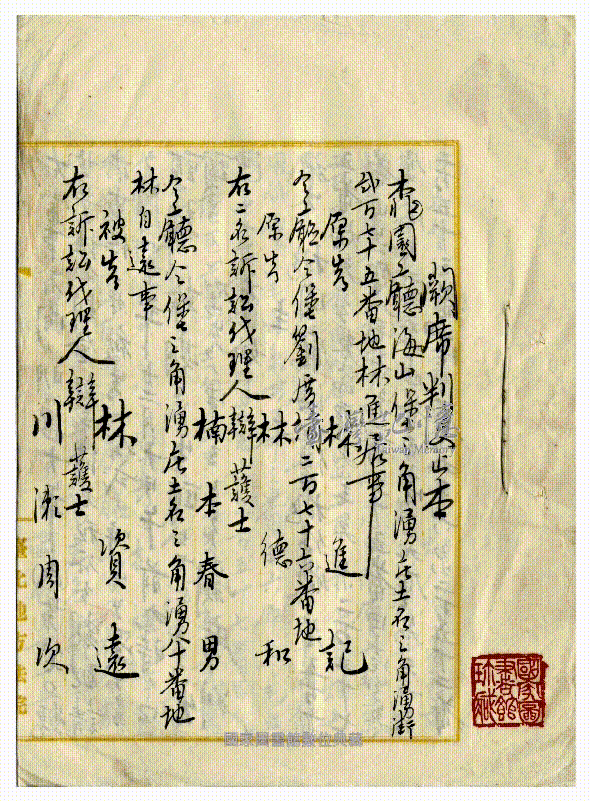 闕席判決正本
桃園廳海山堡三角湧庄土名三角湧街
貳百七十五番地林進居事
原告 林進記
仝廳仝堡劉厝埔二百七十六番地
原告 林德和
右二名訴訟代理人辯護士
楠本春男
仝廳仝堡三角湧庄土名三角湧八十番地
林自遠事
被告 林資遠
右訴訟代理人辯護士
川瀨周次
臺北地方法院
國家圖書館珍藏
國家圖書館數位典藏
Taiwan Memory